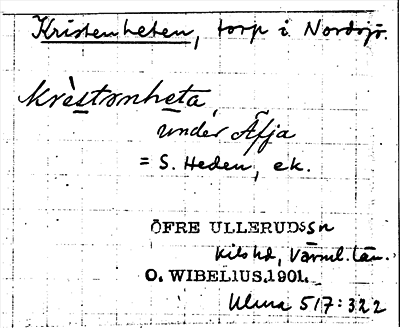 Kristenheten, torp i Nordsjö.
krèstɔnheta,
under Äfja
= S. Heden, ek.
ÖFRE ULLERUDS sn
Kils hd, Värml. län.
O. WIBELIUS. 1901.
Ulma 517:322